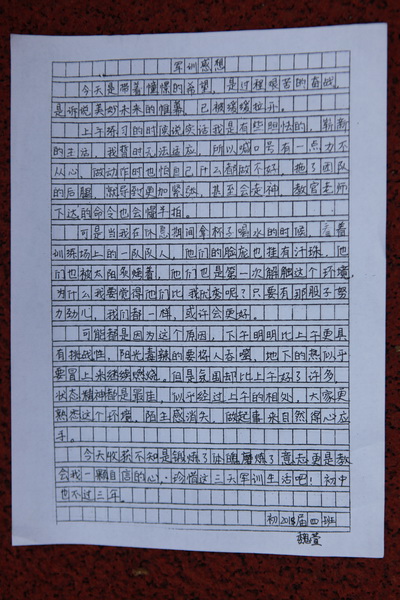 军训感想
今天是揣着憧憬的希望，是过程艰苦的奋战，
是诉说美妙未来的帷幕，已被缓缓拉开。
上午练习的时候说实话我是有些胆怯的，崭新
的生活，我暂时无法适应，所以喊口号有一点力不
从心，做动作时也怕自己什么都做不好，拖了团队
的后腿，就导致更加紧张，甚至会走神，教官老师
下达的命令也会慢半拍。
可是当我在休息期间拿杯子喝水的时候，看着
训练场上的一队队人，他们的脸庞也挂有汗珠，他
们也被太阳炙烤着，他们也是第一次解触这个环境，
为什么我要觉得他们比我优秀呢？只要有那股子努
力劲儿，我们都一样，或许会更好。
可能都是因为这个原因，下午明明比上午更具
有挑战性，阳光毒辣的要将人吞噬，地下的热似乎
要冒上来继续燃烧。但是氛围却比上午好了许多，
状态精神都是最佳，似乎经过上午的相处，大家更
熟悉这个环境，陌生感消失，做起事来自然得心应
手。
今天收获不知是锻炼了体魄磨炼了意志更是教
会我一颗自信的心，珍惜这三天军训生活吧！初中
也不过三年。
初2018届四班
魏萱